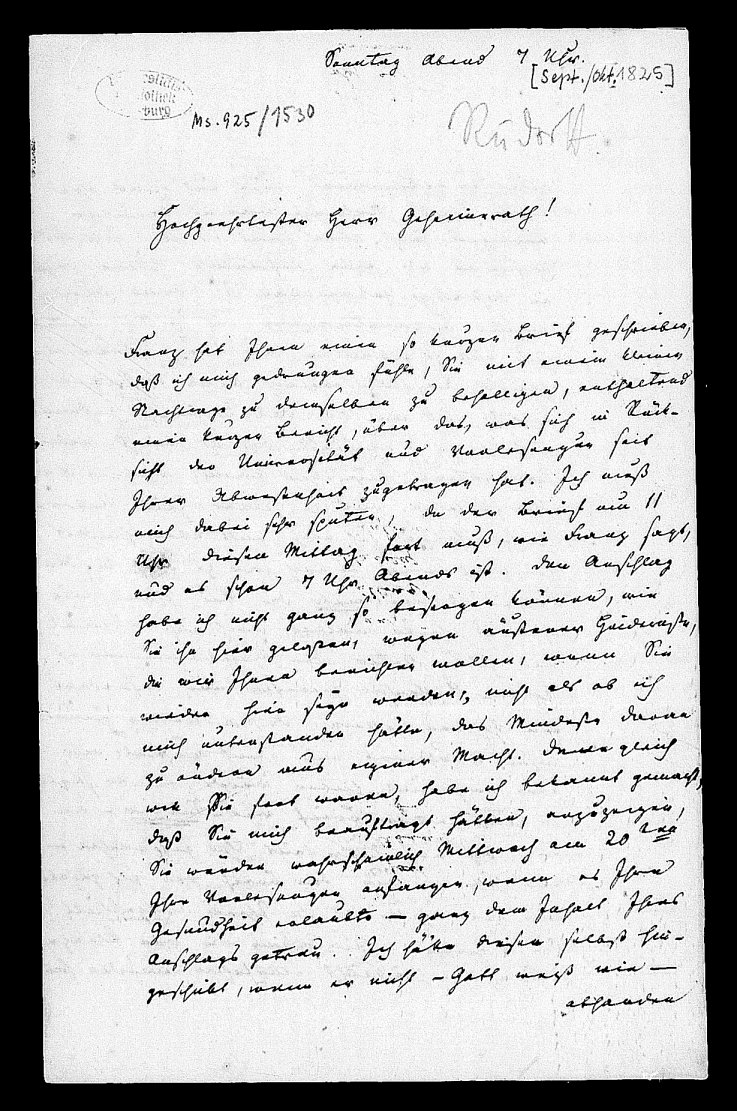 Sonntag Abend 7 Uhr.
[Sept./Okt. 1825]
Ms. 925/1530
Rudorff.
Hochgeehrtester Herr Geheimerath!
Franz hat Ihnen einen so kurzen Brief geschrieben,
daß ich mich gedrungen fühle, Sie mit einem kleinen
Nachtrage zu demselben zu behelligen, enthaltend
einen kurzen Bericht, über das, was sich in Rück-
sicht der Universität und Vorlesungen seit
Ihrer Abwesenheit zugetragen hat. Ich muß
mich dabei sehr sputen, da der Brief um 11
Uhr diesen Mittag fort muß, wie Franz sagt,
und es schon 7 Uhr Abends ist. Den Anschlag
habe ich nicht ganz so besorgen können, wie
Sie ihn hier gelassen, wegen äußerer Hindernisse,
die wir Ihnen berichten wollen, wenn Sie
wieder hier seyn werden, nicht als ob ich
mich unterstanden hätte, das Mindeste daran
zu ändern aus eigener Macht. Denn gleich
wie Sie fort waren, habe ich bekannt gemacht,
daß Sie mich beauftragt hätten, anzuzeigen,
Sie würden wahrscheinlich Mittwoch am 20 ten
Ihre Vorlesungen anfangen, wenn es Ihre
Gesundheit erlaubte — ganz dem Inhalt Ihres
Anschlags getreu. Ich hätte diesen selbst hin-
geschickt, wenn er nicht — Gott weiß wie —
abhanden